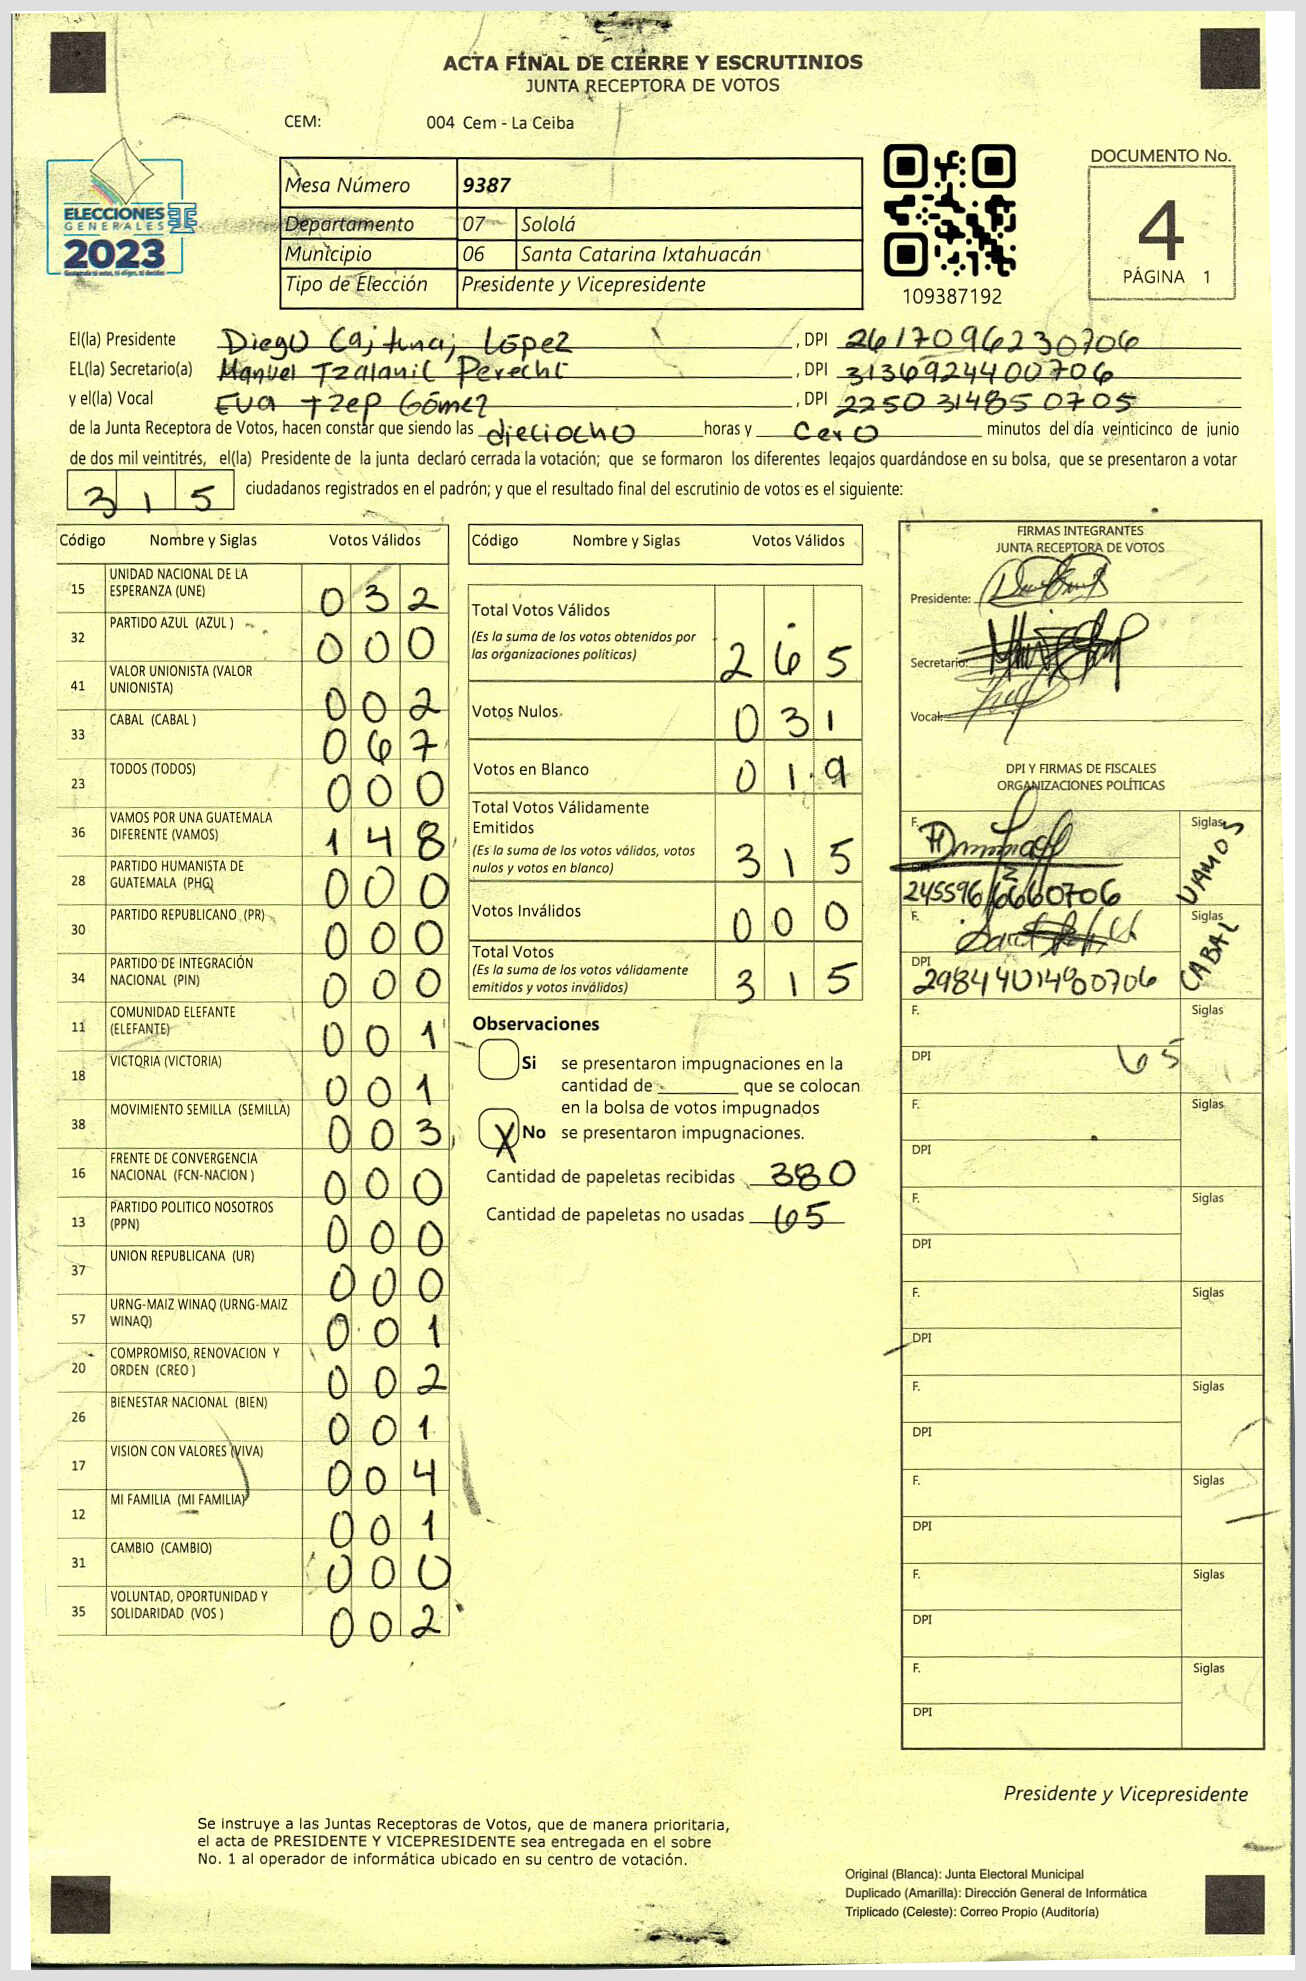 ACTA FINAL DE CIERRE Y ESCRUTINIOS
JUNTA RECEPTORA DE VOTOS
CEM: 004 Cem - La Ceiba
ELECCIONES
GENERALES
2023
Mesa Número 9387
Departamento 07 Sololá
Municipio 06 Santa Catarina Ixtahuacán
Tipo de Elección Presidente y Vicepresidente
109387192
DOCUMENTO No.
4
PÁGINA 1
El(la) Presidente Diego López, DPI 2617096230706
EL(la) Secretario(a) Manuel, DPI 3136924400706
y el(la) Vocal Eva Tzep Gómez, DPI 2250314850705
de la Junta Receptora de Votos, hacen constar que siendo las dieciocho horas y cero minutos del día veinticinco de junio
de dos mil veintitrés, el(la) Presidente de la junta declaró cerrada la votación; que se formaron los diferentes legajos guardándose en su bolsa, que se presentaron a votar
315 ciudadanos registrados en el padrón; y que el resultado final del escrutinio de votos es el siguiente:
Código Nombre y Siglas Votos Válidos
15 UNIDAD NACIONAL DE LA ESPERANZA (UNE) 032
32 PARTIDO AZUL (AZUL ) 000
41 VALOR UNIONISTA (VALOR UNIONISTA) 002
33 CABAL (CABAL ) 067
23 TODOS (TODOS) 000
36 VAMOS POR UNA GUATEMALA DIFERENTE (VAMOS) 148
28 PARTIDO HUMANISTA DE GUATEMALA (PHG) 000
30 PARTIDO REPUBLICANO (PR) 000
34 PARTIDO DE INTEGRACIÓN NACIONAL (PIN) 000
11 COMUNIDAD ELEFANTE (ELEFANTE) 001
18 VICTORIA (VICTORIA) 001
38 MOVIMIENTO SEMILLA (SEMILLA) 003
16 FRENTE DE CONVERGENCIA NACIONAL (FCN-NACION ) 000
13 PARTIDO POLITICO NOSOTROS (PPN) 000
37 UNION REPUBLICANA (UR) 000
57 URNG-MAIZ WINAQ (URNG-MAIZ WINAQ) 001
20 COMPROMISO, RENOVACION Y ORDEN (CREO ) 002
26 BIENESTAR NACIONAL (BIEN) 001
17 VISION CON VALORES (VIVA) 004
12 MI FAMILIA (MI FAMILIA) 001
31 CAMBIO (CAMBIO) 000
35 VOLUNTAD, OPORTUNIDAD Y SOLIDARIDAD (VOS ) 002
Código Nombre y Siglas Votos Válidos
Total Votos Válidos 265
(Es la suma de los votos obtenidos por
las organizaciones políticas)
Votos Nulos 031
Votos en Blanco 019
Total Votos Válidamente
Emitidos 315
(Es la suma de los votos válidos, votos
nulos y votos en blanco)
Votos Inválidos 000
Total Votos 315
(Es la suma de los votos válidamente
emitidos y votos inválidos)
Observaciones
Si se presentaron impugnaciones en la
cantidad de ________ que se colocan
en la bolsa de votos impugnados
X No se presentaron impugnaciones.
Cantidad de papeletas recibidas 380
Cantidad de papeletas no usadas 65
FIRMAS INTEGRANTES
JUNTA RECEPTORA DE VOTOS
Presidente:
Secretario:
Vocal:
DPI Y FIRMAS DE FISCALES
ORGANIZACIONES POLÍTICAS
F. Siglas VAMOS
F. Siglas CABAL
DPI
F. Siglas
DPI 65
F. Siglas
DPI
F. Siglas
DPI
F. Siglas
DPI
F. Siglas
DPI
F. Siglas
DPI
F. Siglas
DPI
F. Siglas
DPI
Presidente y Vicepresidente
Se instruye a las Juntas Receptoras de Votos, que de manera prioritaria,
el acta de PRESIDENTE Y VICEPRESIDENTE sea entregada en el sobre
No. 1 al operador de informática ubicado en su centro de votación.
Original (Blanca): Junta Electoral Municipal
Duplicado (Amarilla): Dirección General de Informática
Triplicado (Celeste): Correo Propio (Auditoría)